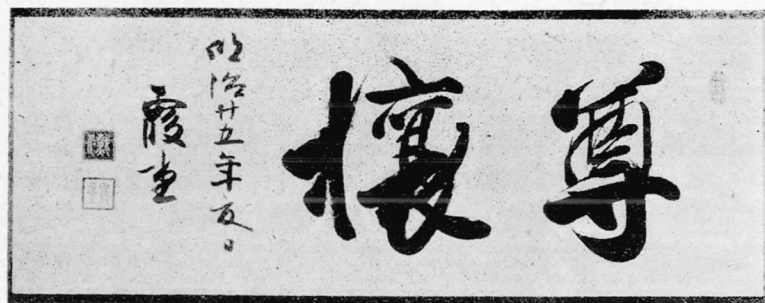 尊攘
明治廿五年夏日
霞堂